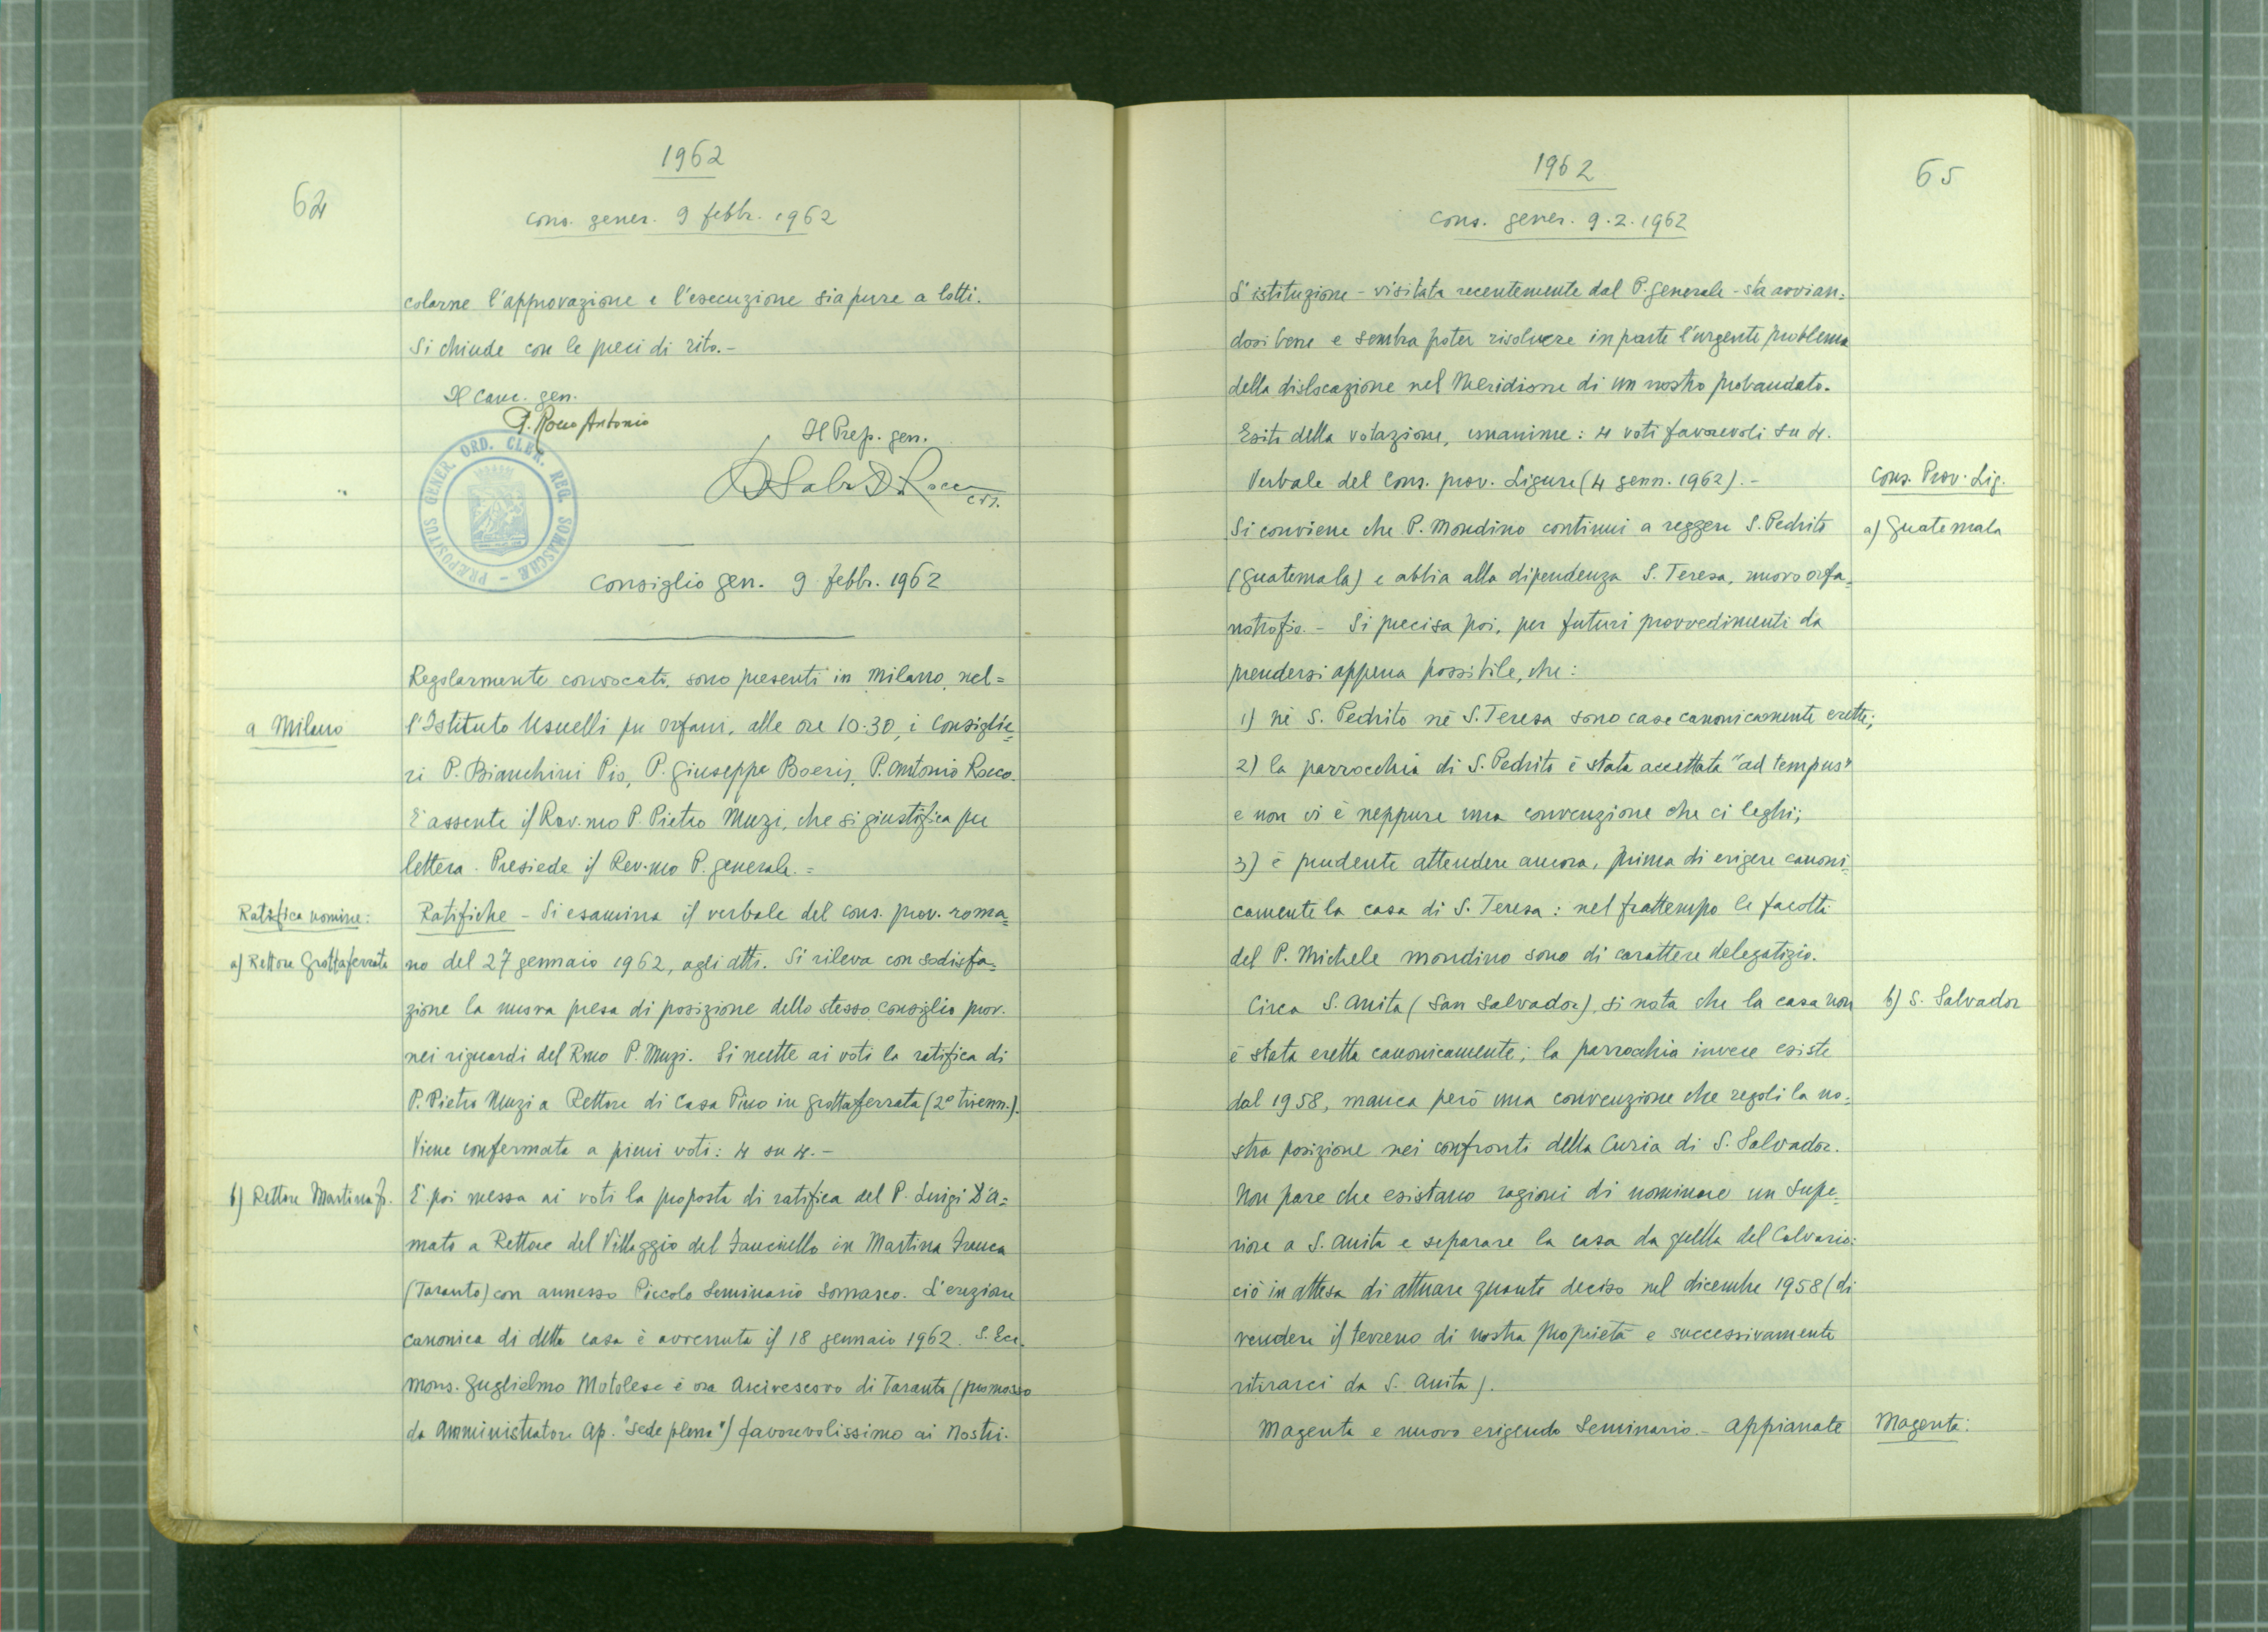 1962
64
cons. gener. 9 febbr. 1962
colarne l'approvazione e l'esecuzione sia pure a lotti.
Si chiude con le preci di rito.-
Il Canc. gen.
P. Rocco Antonio
Il Prep. gen.
crs.
PRÆPOSITUS GENER. ORD. CLER. REG. SOMASCHÆ
Consiglio gen. 9 febbr. 1962
Regolarmente convocati, sono presenti in Milano, nel=
a Milano
l'Istituto Usuelli per orfani, alle ore 10.30, i Consiglie=
ri P. Bianchini Pio, P. Giuseppe Boeris, P. Antonio Rocco.
E' assente il Rev.mo P. Pietro Muzi, che si giustifica per
lettera. Presiede il Rev.mo P. generale.=
Ratifica nomine:
Ratifiche - Si esamina il verbale del cons. prov. roma=
a) Rettore Grottaferrata
no del 27 gennaio 1962, agli atti. Si rileva con sodisfa=
zione la nuova presa di posizione dello stesso consiglio prov.
nei riguardi del Rmo P. Muzi. Si mette ai voti la ratifica di
P. Pietro Muzi a Rettore di Casa Pino in Grottaferrata (2° trienn.).
Viene confermato a pieni voti: 4 su 4.-
b) Rettore Martina F.
E' poi messa ai voti la proposta di ratifica del P. Luigi D'A=
mato a Rettore del Villaggio del Fanciullo in Martina Franca
(Taranto) con annesso Piccolo Seminario Somasco. L'erezione
canonica di detta casa è avvenuta il 18 gennaio 1962. S. Ecc.
Mons. Guglielmo Motolese è ora Arcivescovo di Taranto (promosso
da Amministratore Ap. "sede plena") favorevolissimo ai Nostri.
1962
65
cons. gener. 9.2.1962
L'istituzione - visitata recentemente dal P. generale - sta avvian=
dosi bene e sembra poter risolvere in parte l'urgente problema
della dislocazione nel Meridione di un nostro probandato.
Esito della votazione, unanime: 4 voti favorevoli su 4.
Verbale del Cons. prov. Ligure (4 genn. 1962).-
Cons. Prov. Lig.
Si conviene che P. Mondino continui a reggere S. Pedrito
a) Guatemala
(Guatemala) e abbia alla dipendenza S. Teresa, nuovo orfa=
notrofio.- Si precisa poi, per futuri provvedimenti da
prendersi appena possibile, che:
1) nè S. Pedrito nè S. Teresa sono case canonicamente erette;
2) la parrocchia di S. Pedrito è stata accettata "ad tempus"
e non vi è neppure una convenzione che ci leghi;
3) è prudente attendere ancora, prima di erigere canoni=
camente la casa di S. Teresa: nel frattempo le facoltà
del P. Michele Mondino sono di carattere delegatizio.
Circa S. Anita (San Salvador), si nota che la casa non
b) S. Salvador
è stata eretta canonicamente; la parrocchia invece esiste
dal 1958, manca però una convenzione che regoli la no=
stra posizione nei confronti della Curia di S. Salvador.
Non pare che esistano ragioni di nominare un Supe=
riore a S. Anita e separare la casa da quella del Calvario:
ciò in attesa di attuare quanto deciso nel dicembre 1958 (di
vendere il terreno di nostra proprietà e successivamente
ritirarci da S. Anita).
Magenta e nuovo erigendo Seminario.- Appianate
Magenta: